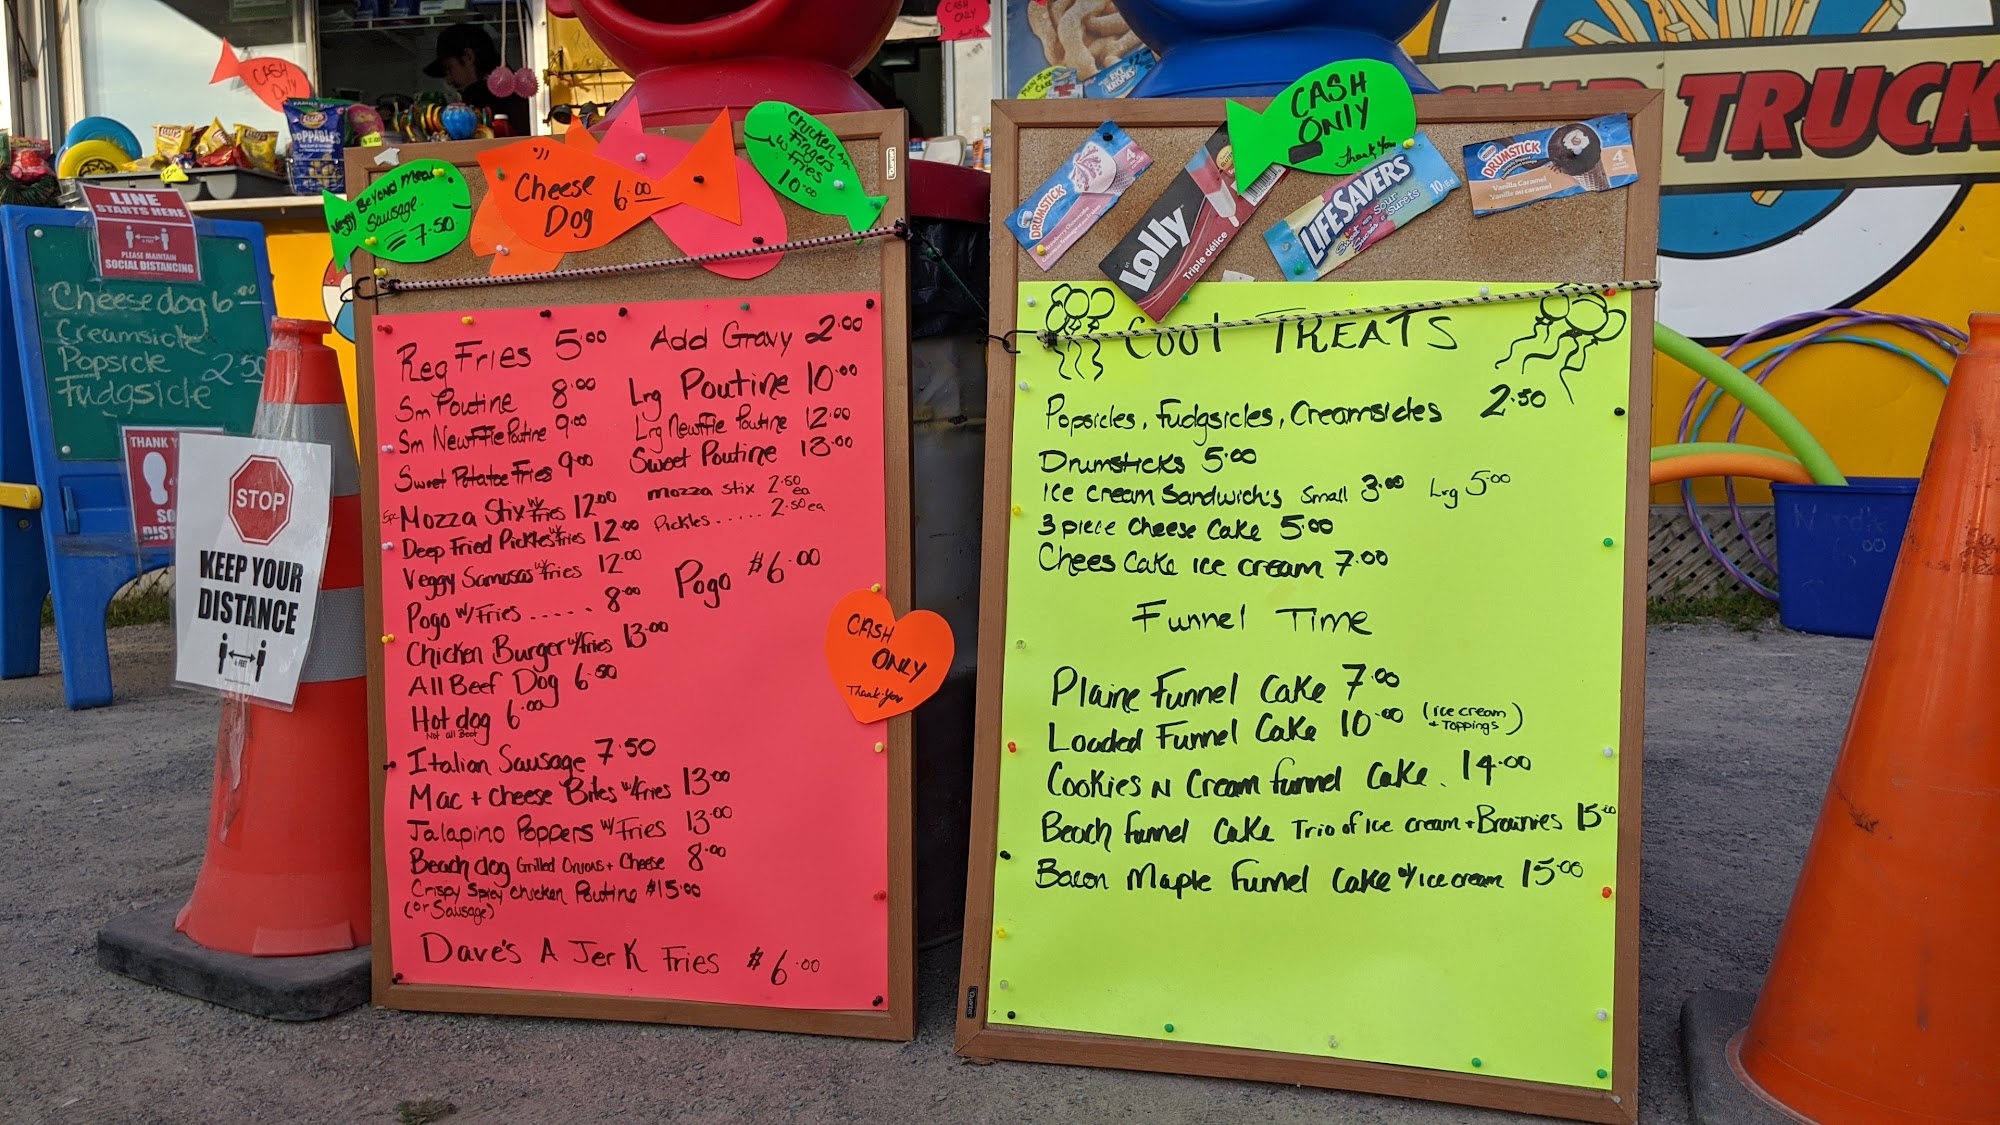 CASH ONLY
CASH ONLY
TRUCK
LINE
STARTS HERE
PLEASE MAINTAIN
SOCIAL DISTANCING
Cheesedog 6.00
Creamsicle
Popsicle 2.50
Fudgsicle
THANK
STOP
KEEP YOUR
DISTANCE
6 FEET
Veggy Beyond Meat
Sausage.
7.50
Cheese
Dog 6.00
Chicken
Fingers
w Fries
10.00
Reg Fries 5.00 Add Gravy 2.00
Sm Poutine 8.00 Lrg Poutine 10.00
Sm Newffie Poutine 9.00 Lrg Newffie Poutine 12.00
Sweet Potatoe Fries 9.00 Sweet Poutine 13.00
5pc Mozza Stix w/ Fries 12.00 mozza stix 2.50 ea
Deep Fried Pickles w/ Fries 12.00 Pickles..... 2.50 ea
Veggy Samosas w/ Fries 12.00
Pogo w/ Fries ..... 8.00 Pogo $6.00
Chicken Burger w/ Fries 13.00
All Beef Dog 6.50
Hot dog 6.00
Not all Beef
Italian Sausage 7.50
Mac + cheese Bites w/ Fries 13.00
Jalapino Poppers w/ Fries 13.00
Beach dog Grilled Onions + Cheese 8.00
Crispy Spicy Chicken Poutine $15.00
(or Sausage)
Dave's A Jerk Fries $6.00
CASH
ONLY
Thank-You
CASH
ONLY
Thank You
DRUMSTICK
Lolly
Triple délice
LIFESAVERS
DRUMSTICK
Vanilla Caramel
Vanille au caramel
4
Cool TREATS
Popsicles, Fudgsicles, Creamsicles 2.50
Drumsticks 5.00
Ice Cream Sandwich's Small 3.00 Lrg 5.00
3 piece Cheese Cake 5.00
Chees Cake ice cream 7.00
Funnel Time
Plaine Funnel Cake 7.00
Loaded Funnel Cake 10.00 (ice cream + Toppings)
Cookies N Cream funnel Cake. 14.00
Beach funnel Cake Trio of Ice cream + Brownies 15.00
Bacon Maple Funnel Cake w/ Ice cream 15.00